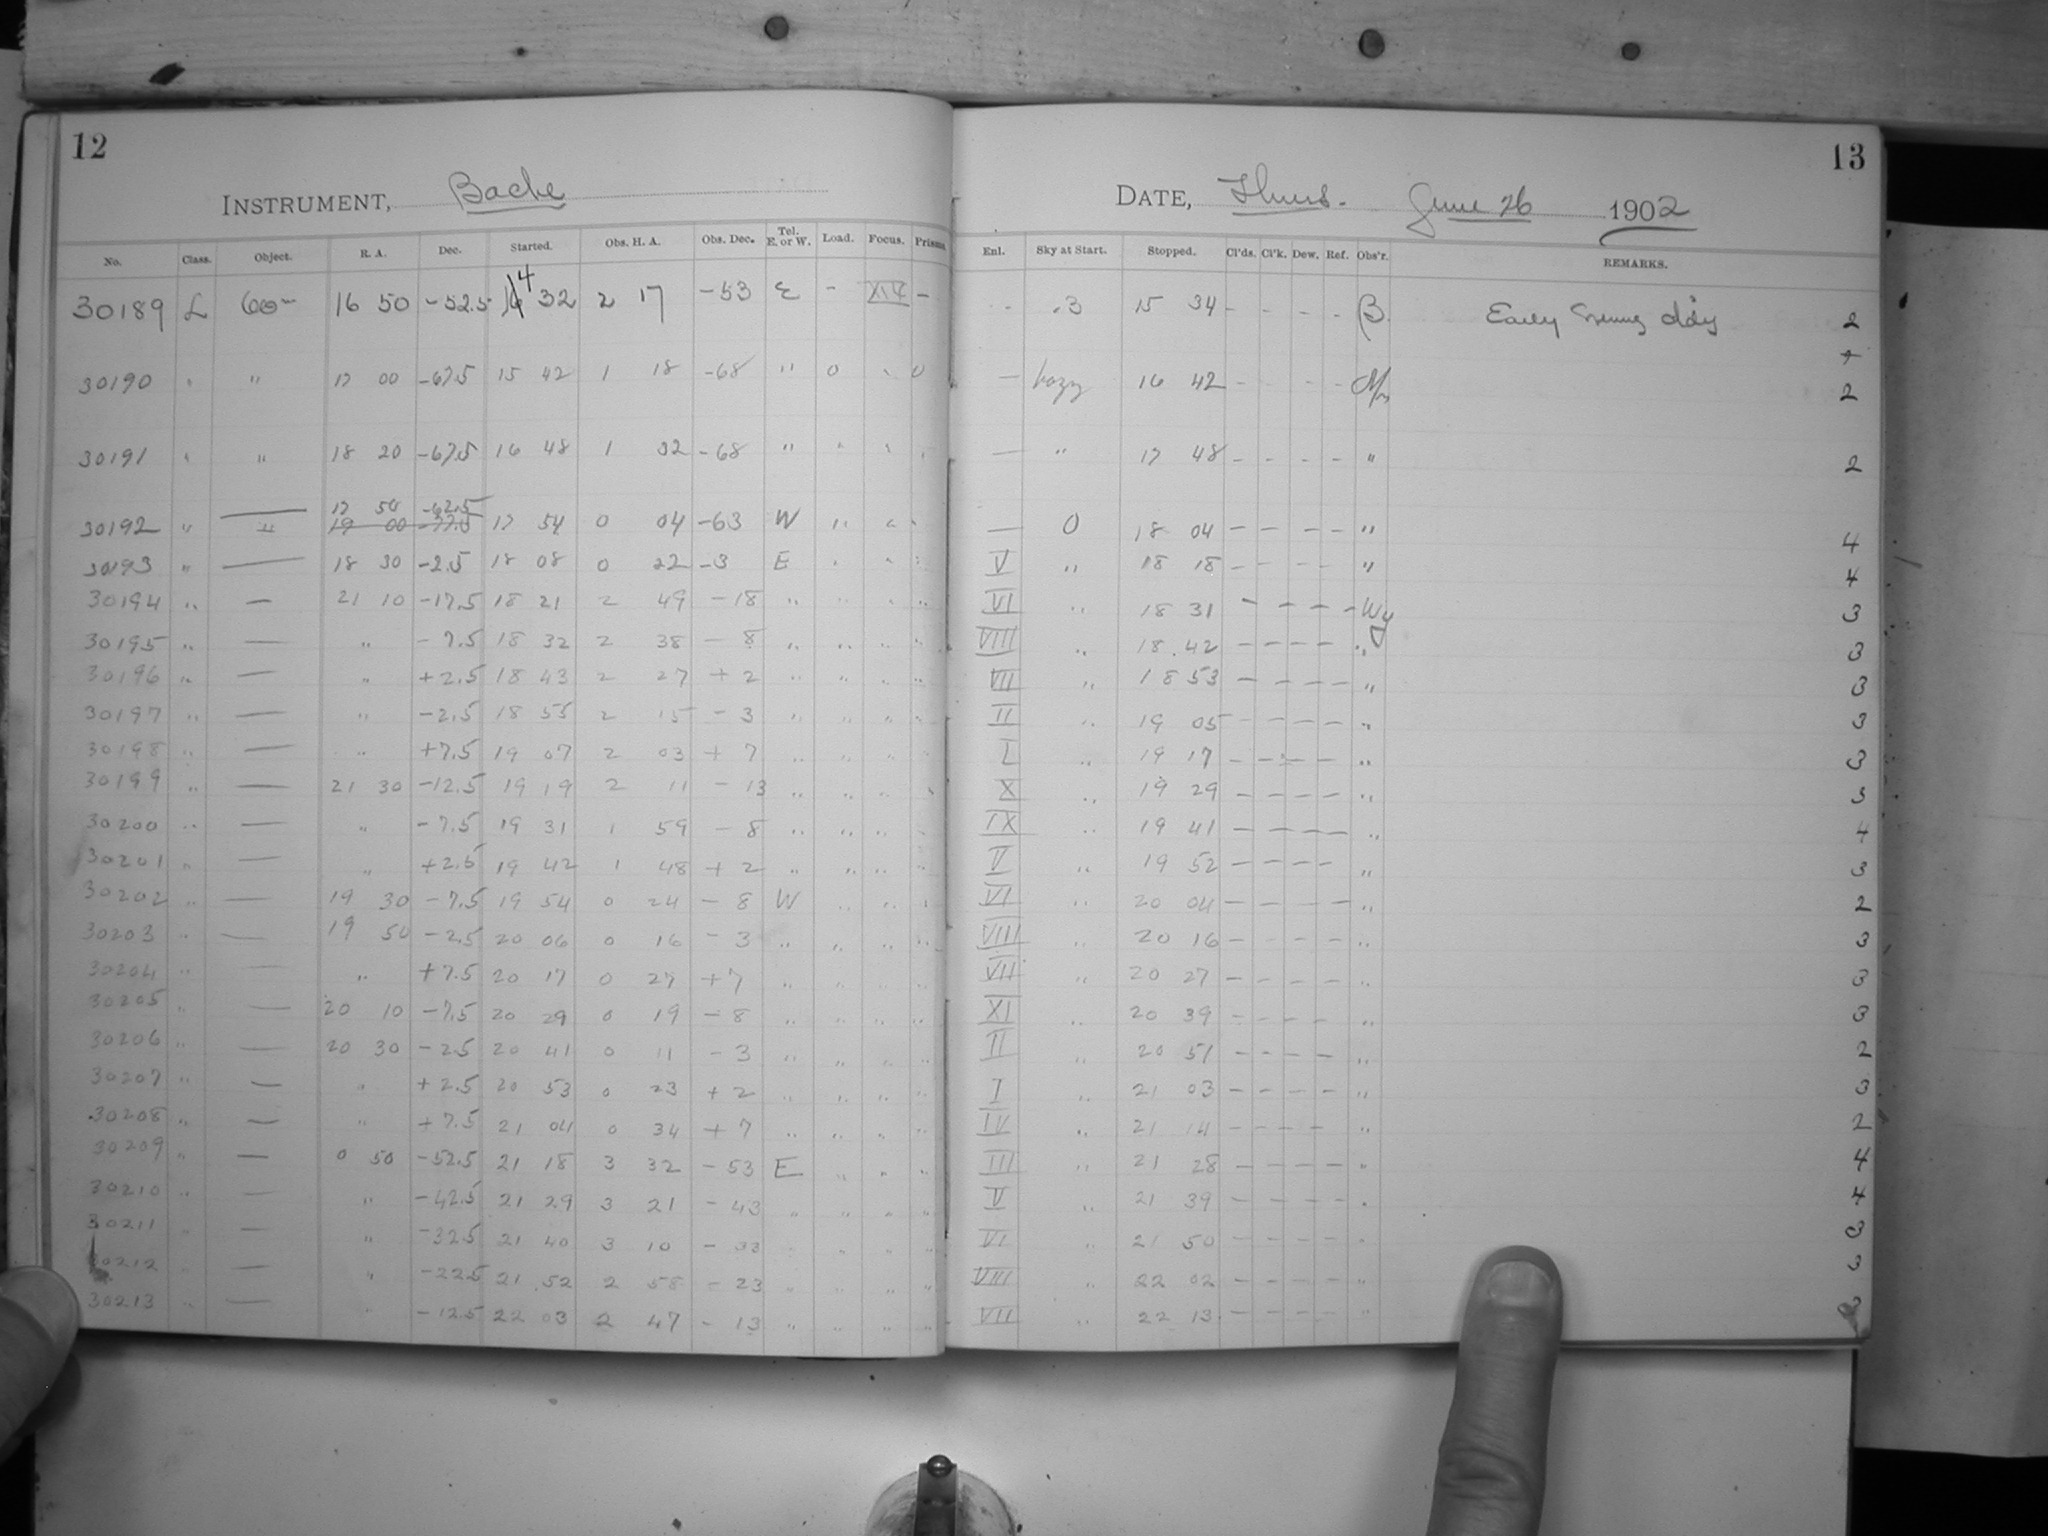 12
INSTRUMENT, Bache
No. Class. Object. R. A. Dec. Started. Obs. H. A. Obs. Dec. Tel. E. or W. Load. Focus. Prisms
30189 L 60m 16 50 -52.5 14 32 2 17 -53 E - XIV -
30190 " " 17 00 -67.5 15 42 1 18 -68 " 0 " 0
30191 " " 18 20 -67.5 16 48 1 32 -68 " " " "
17 50 -62.5
30192 " " 19 00 17 54 0 04 -63 W " " "
30193 " — 18 30 -2.5 18 08 0 22 -3 E " " "
30194 " — 21 10 -17.5 18 21 2 49 -18 " " " "
30195 " — " -7.5 18 32 2 38 -8 " " " "
30196 " — " +2.5 18 43 2 27 +2 " " " "
30197 " — " -2.5 18 55 2 15 -3 " " " "
30198 " — " +7.5 19 07 2 03 +7 " " " "
30199 " — 21 30 -12.5 19 19 2 11 -13 " " " "
30200 " — " -7.5 19 31 1 59 -8 " " " "
30201 " — " +2.5 19 42 1 48 +2 " " " "
30202 " — 19 30 -7.5 19 54 0 24 -8 W " " "
30203 " — 19 50 -2.5 20 06 0 16 -3 " " " "
30204 " — " +7.5 20 17 0 27 +7 " " " "
30205 " — 20 10 -7.5 20 29 0 19 -8 " " " "
30206 " — 20 30 -2.5 20 41 0 11 -3 " " " "
30207 " — " +2.5 20 53 0 23 +2 " " " "
30208 " — " +7.5 21 04 0 34 +7 " " " "
30209 " — 0 50 -52.5 21 18 3 32 -53 E " " "
30210 " — " -42.5 21 29 3 21 -43 " " " "
30211 " — " -32.5 21 40 3 10 -33 " " " "
30212 " — " -22.5 21 52 2 58 -23 " " " "
30213 " — " -12.5 22 03 2 47 -13 " " " "
13
DATE, Thurs. June 26 1902
Enl. Sky at Start. Stopped. Cl'ds. Cl'k. Dew. Ref. Obs'r. REMARKS.
- .3 15 34 - - - - B. Early 2
— hazy 16 42 - - - - 2
— " 17 48 - - - - " 2
— 0 18 04 - - - - " 4
V " 18 18 - - - - " 4
VI " 18 31 - - - - Wy 3
VIII " 18 42 - - - - " 3
VII " 18 53 - - - - " 3
II " 19 05 - - - - " 3
I " 19 17 - - - - " 3
X " 19 29 - - - - " 3
IX " 19 41 - - - - " 4
V " 19 52 - - - - " 3
VI " 20 04 - - - - " 2
VIII " 20 16 - - - - " 3
VII " 20 27 - - - - " 3
XI " 20 39 - - - - " 3
II " 20 51 - - - - " 2
I " 21 03 - - - - " 3
IV " 21 14 - - - - " 2
III " 21 28 - - - - " 4
V " 21 39 - - - - " 4
VI " 21 50 - - - - " 3
VIII " 22 02 - - - - " 3
VII " 22 13 - - - - " 3